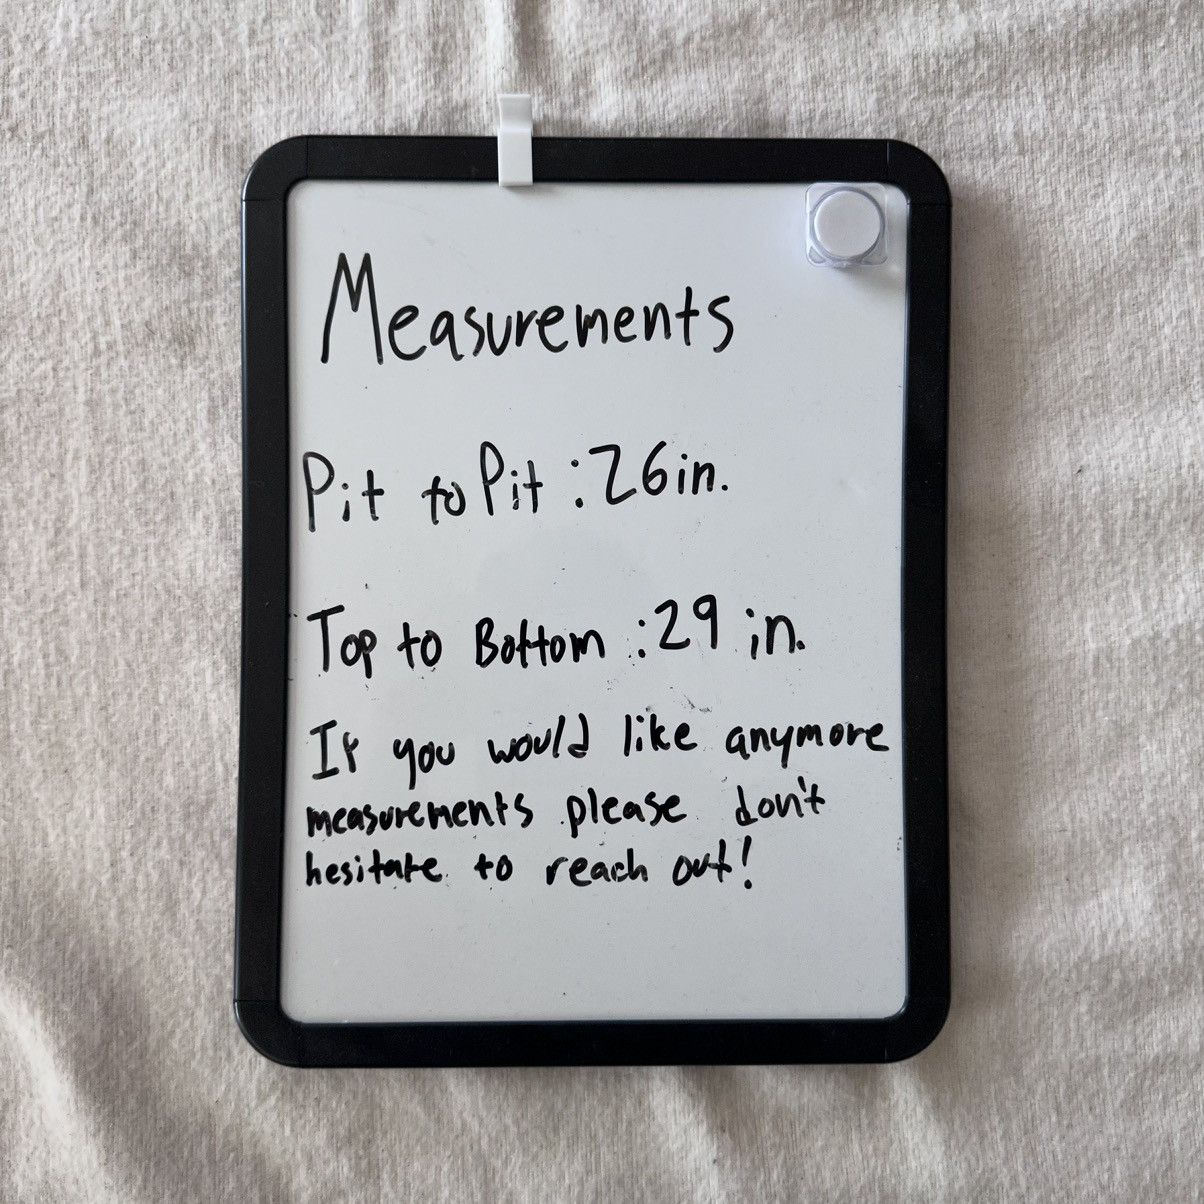 Measurements
Pit to Pit : 26in.
Top to Bottom : 29 in.
If you would like anymore
measurements please don't
hesitate to reach out!